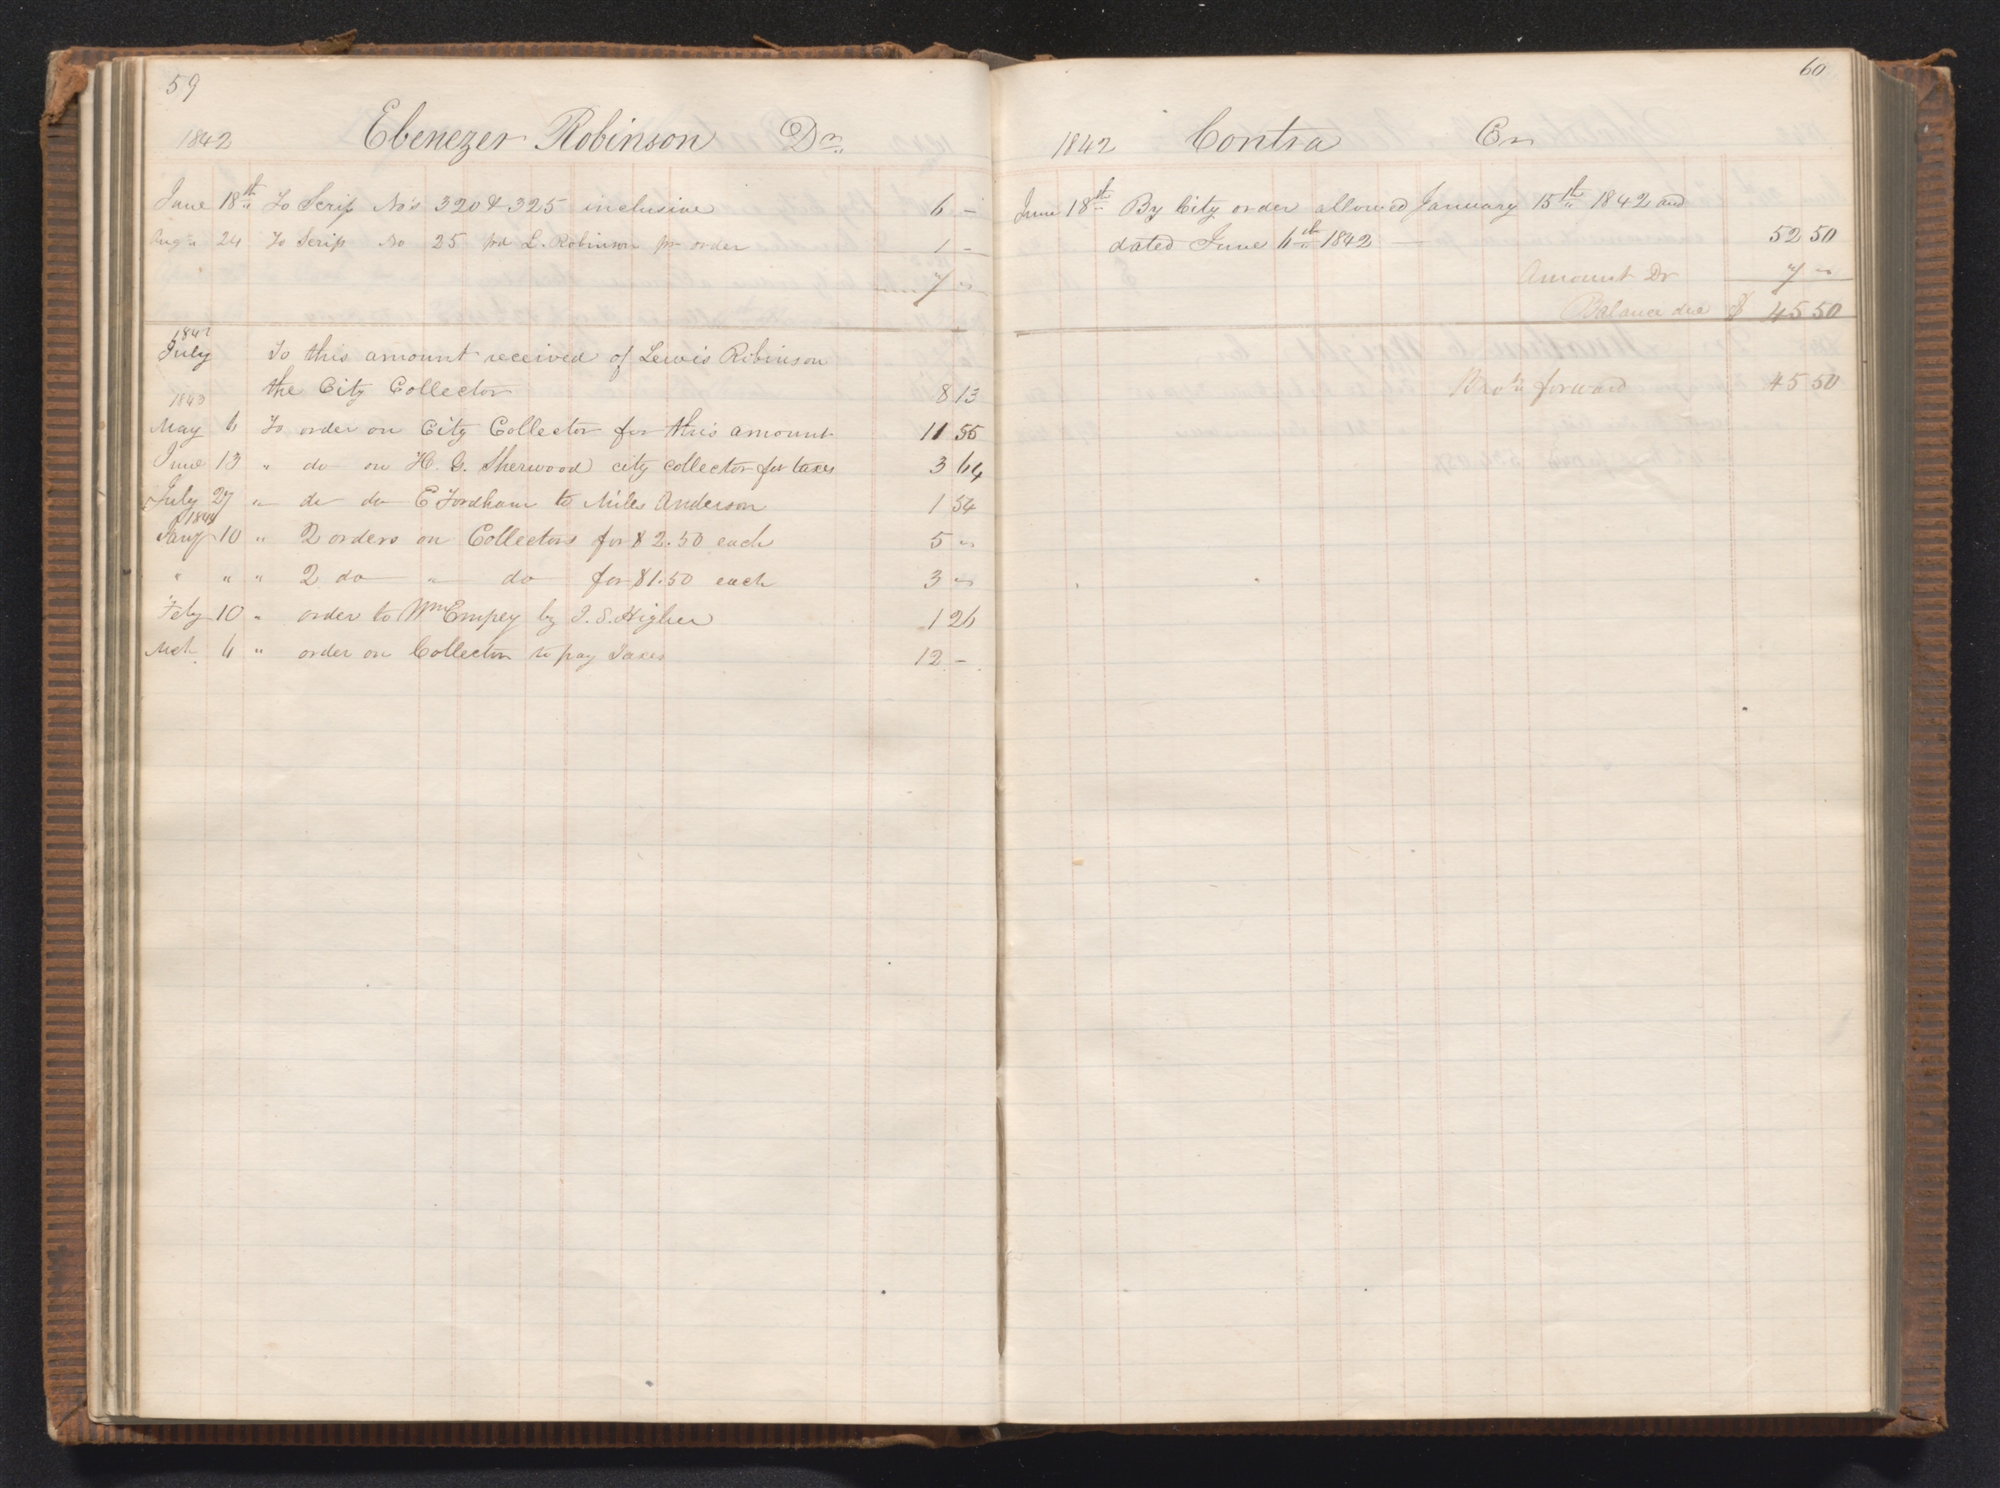 59
1842 Ebenezer Robinson Dr.
June 18th To Scrip No's 320 & 325 inclusive 6 –
Aug 24 To Scrip No 25 pd L. Robinson pr order 1 –
7 "
1842
July To this amount received of Lewis Robinson
the City Collector 8 13
1843
May 6 To order on City Collector for this amount 11 55
June 13 " do on H. G. Sherwood city collector for taxes 3 64
July 27 " do do E Fordham to Miles Anderson 1 54
1844
Jany 10 " 2 orders on Collectors for $2.50 each 5 "
" " " 2 do " do for $1.50 each 3 "
Feby 10 " order to Wm Empey by I. S. Higbee 1 26
Mch 6 " order on Collector to pay Taxes 12 –
60
1842 Contra Cr
June 18th By City order allowed January 15th 1842 and
dated June 6th 1842 — 52 50
Amount Dr 7 "
Balance due $ 45 50
Bro't forward 45 50